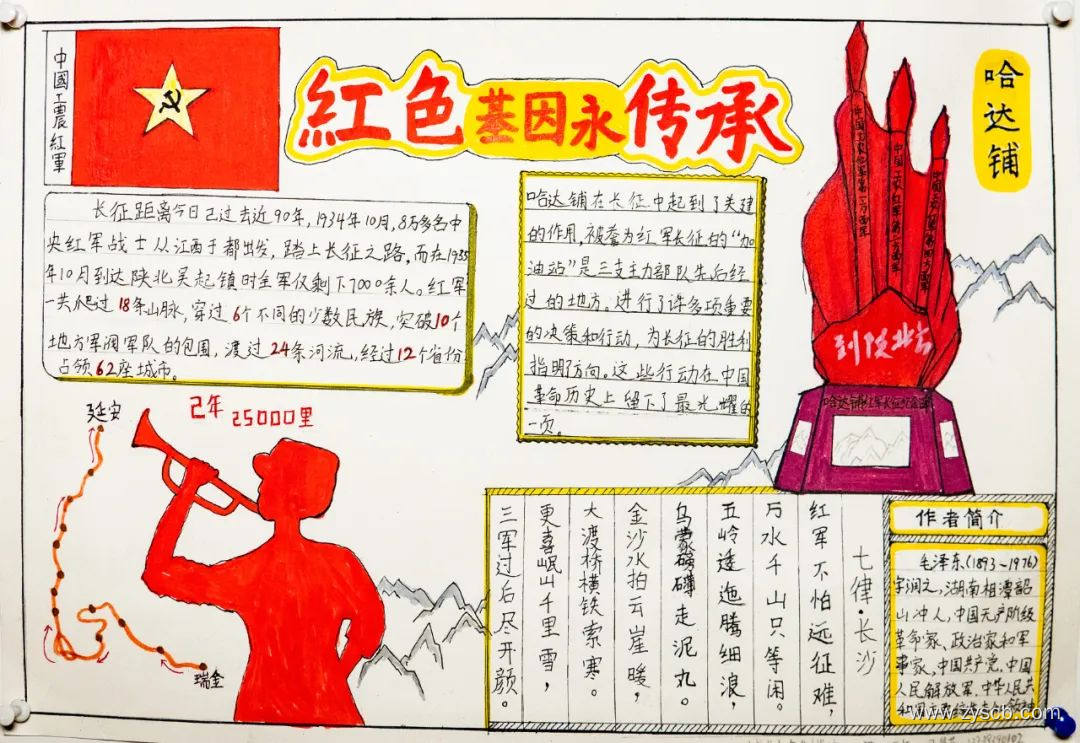 中國工農紅軍
紅色基因永传承
哈达铺
长征距离今日已过去近90年,1934年10月,8万多名中
央红军战士从江西于都出发,踏上长征之路,而在1935
年10月到达陕北吴起镇时全军仅剩下7000余人。红军
一共爬过18条山脉,穿过6个不同的少数民族,突破10个
地方军阀军队的包围,渡过24条河流,经过12个省份
占领62座城市。
哈达铺在长征中起到了关建
的作用,被誉为红军长征的“加
油站”是三支主力部队先后经
过的地方。进行了许多项重要
的决策和行动,为长征的胜利
指明方向。这些行动在中国
革命历史上留下了最光耀的
一页。
中国工农红军第一方面军
中国工农红军第二方面军
中国工农红军第四方面军
到陕北去
哈达铺红军长征纪念馆
延安
2年 25000里
瑞金
七律·长沙
红军不怕远征难,
万水千山只等闲。
五岭逶迤腾细浪,
乌蒙磅礴走泥丸。
金沙水拍云崖暖,
大渡桥横铁索寒。
更喜岷山千里雪,
三军过后尽开颜。
作者简介
毛泽东(1893~1976)
字润之,湖南相潭韶
山冲人,中国无产阶级
革命家、政治家和军
事家,中国共产党、中国
人民解放军、中华人民共
和国
www.zyscb.com